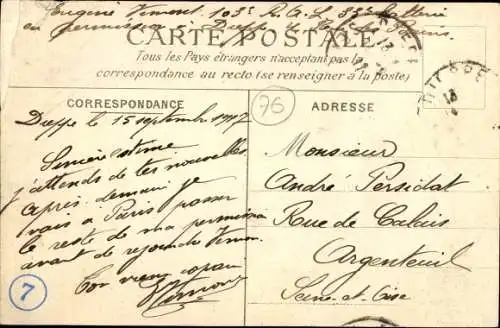 Eugène Vimont, 103e R.A.L 33e batterie
en permission à Dieppe
CARTE POSTALE
Tous les Pays étrangers n'acceptent pas la
correspondance au recto (se renseigner à la poste)
DIEPPE
13
CORRESPONDANCE
76
ADRESSE
Dieppe le 15 septembre 1917
Monsieur
André Persidat
Rue de Calais
Argenteuil
Seine-et-Oise
j'attends de tes nouvelles
après demain je
vais à Paris passer
le reste de ma permission
avant de rejoindre Vernon.
Ton vieux copain
EVimont
7